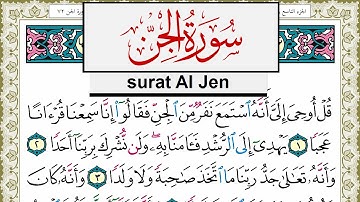 الجزء التاسع
سورة الجن ٧٢
سُورَةُ الْجِنِّ
surat Al Jen
قُلْ أُوحِيَ إِلَيَّ أَنَّهُ ٱسْتَمَعَ نَفَرٌ مِّنَ ٱلْجِنِّ فَقَالُوٓا۟ إِنَّا سَمِعْنَا قُرْءَانًا
عَجَبًا ١ يَهْدِىٓ إِلَى ٱلرُّشْدِ فَـَٔامَنَّا بِهِۦ وَلَن نُّشْرِكَ بِرَبِّنَآ أَحَدًا ٢
وَأَنَّهُۥ تَعَٰلَىٰ جَدُّ رَبِّنَا مَا ٱتَّخَذَ صَٰحِبَةً وَلَا وَلَدًا ٣ وَأَنَّهُۥ كَانَ